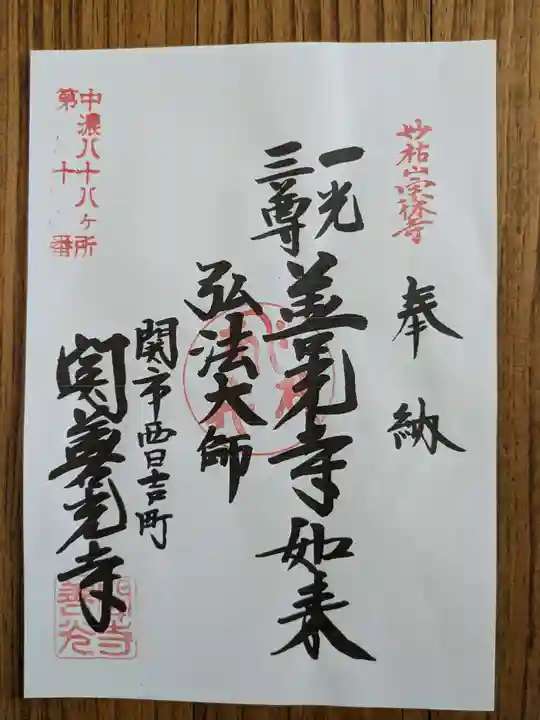 妙祐山宗休寺
奉納
一光三尊
善光寺如来
弘法大師
関市西日吉町
関善光寺
中濃八十八ヶ所
第十番
関善光寺